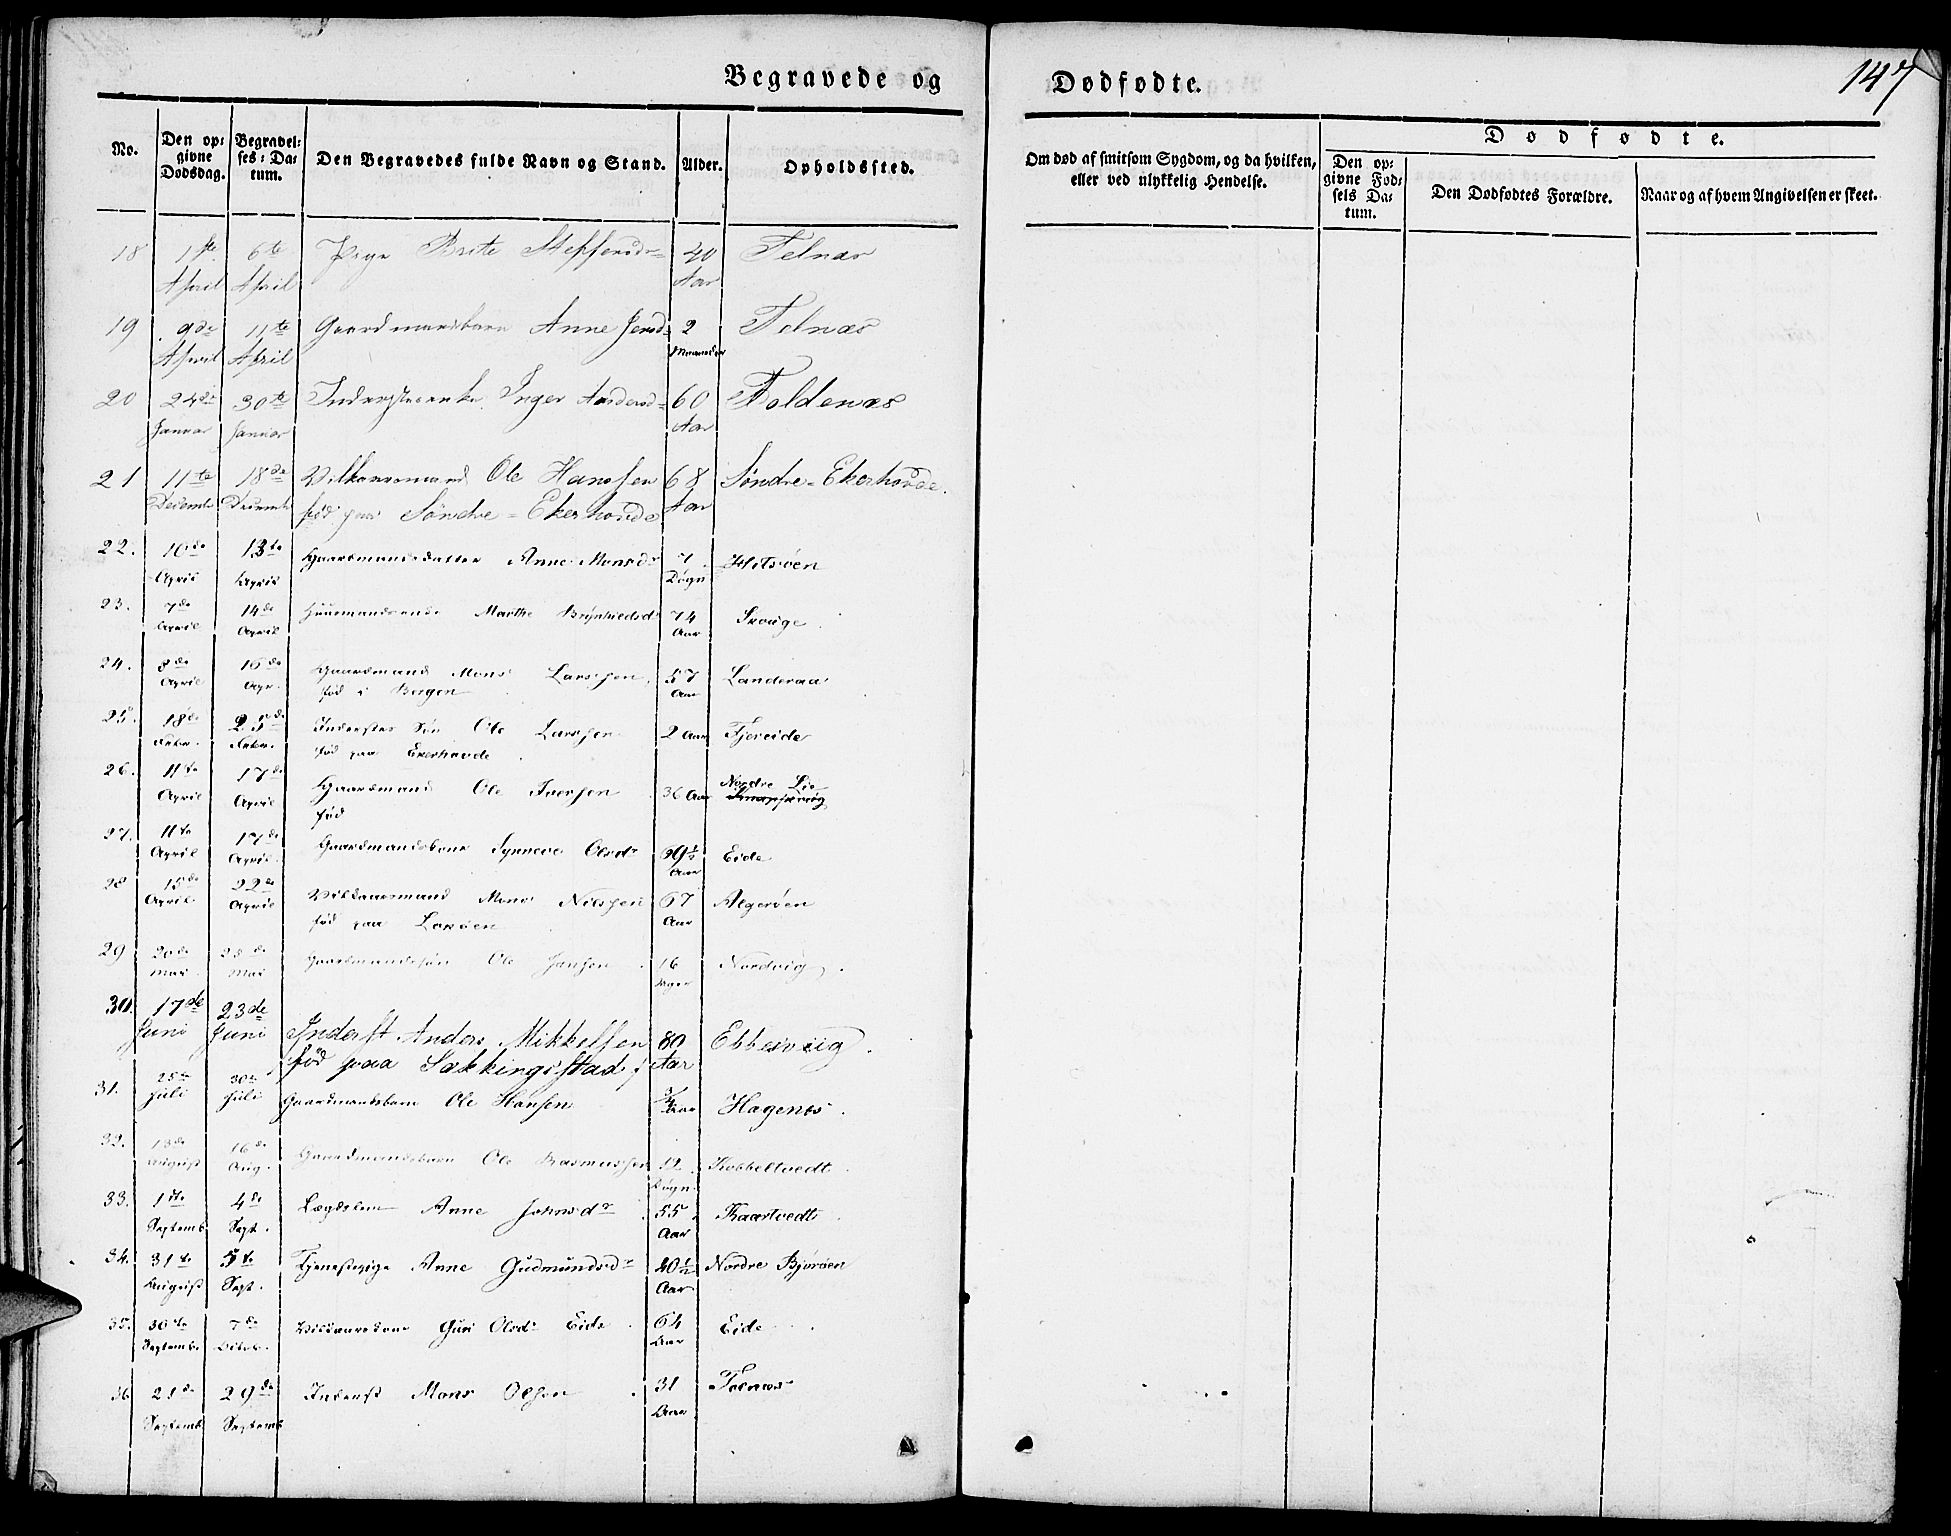 Begravede og
Dødfødte.
147
No.
Den opgivne Dødsdag.
Begravelses-Datum.
Den Begravedes fulde Navn og Stand.
Alder.
Opholdssted.
Om død af smitsom Sygdom, og da hvilken, eller ved ulykkelig Hendelse.
Dødfødte.
Den opgivne Fødsels Datum.
Den Dødfødtes Forældre.
Naar og af hvem Angivelsen er skeet.
18 1ste April 6te April Pige Brite Steffensdr 40 Aar Telnæs
19 9de April 11te April Gaardmandsbarn Anne 2 Maaneder Telnæs
20 24de Januar 30te Januar Inderstenke Inger Andersd 60 Aar Foldenæs
21 11te Decemb 18de Decemb Vilkaarsmand Ole Hanssen 68 Aar Søndre-Ekerhovde.
fød paa Søndre-Ekerhovde
22. 10de April 13te April Gaardmandsdatter Anne Monsdr 7 Døgn Hitsøen
23. 7de April 14de April Huusmandsenke Marthe Brynhildsdr 74 Aar Skouge.
24. 8de April 16de Apr. Gaardmand Mons Larssen 57 Aar Landeraa
fød i Bergen
25. 18de Febr. 25de Febr. Inderstes Søn Ole Larssen 2 Aar Fjereide
fød paa Ekerhovde
26. 11te April 17de April Gaardmand Ole Iversen 36 Aar Nordre Lie
fød
27. 11te April 17de April. Gaardmandskone Synneve Olsdr 69½ Aar Eide
28 15de April 22de April Vilkaarsmand Mons Nilssen 67 Aar Algerøen
fød paa Lokøen
29 20de Mai 28de Mai Gaardmandssøn Ole Jansen 16 Nordvig.
30. 17de Juni 23de Juni Inderst Anders Mikkelsen 80 Aar Ebbesviig.
fød paa Sækkingstad
31. 25te Juli 30te Juli Gaardmandsbarn Ole Hansen ¾ Aar Hagenæs.
32. 13de August 16de Aug. Gaardmandsbarn Ole Rasmussen 12 Døgn Kobbeltvedt.
33. 1ste Septemb 4de Sept. Lægdslem Anne Johnsdr 55 Aar Kaartvedt.
34. 31te August 5te Sept. Tjenestepige Anne Gudmundsdr 40½ Aar Nordre Bjorøen
35. 30te Septemb. 7de Octob. Vilkaarskone Guri Olsdr Eide. 64 Aar Eide.
36 21de Septemb 29de Septemb Inderst Mons Olsen 31 Aar Telnæs